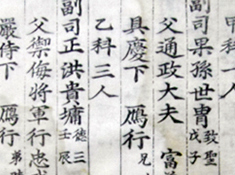 甲科一人
副司果孫世胄 致聖 戊子
父通政大夫 富
具慶下 鴈行 兄
乙科三人
副司正洪貴墉 德三 壬辰
父禦侮將軍行忠
嚴侍下 鴈行 弟